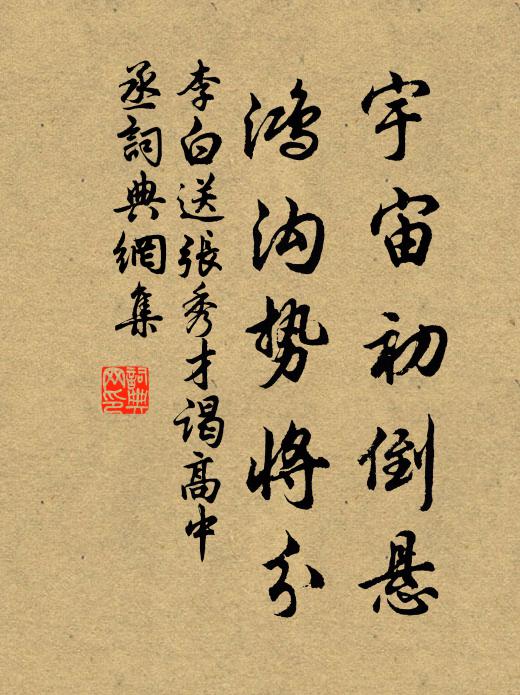 宇宙初倒悬
鸿沟势将分
李白送張秀才謁高中
丞詞典網集
詞典
网印